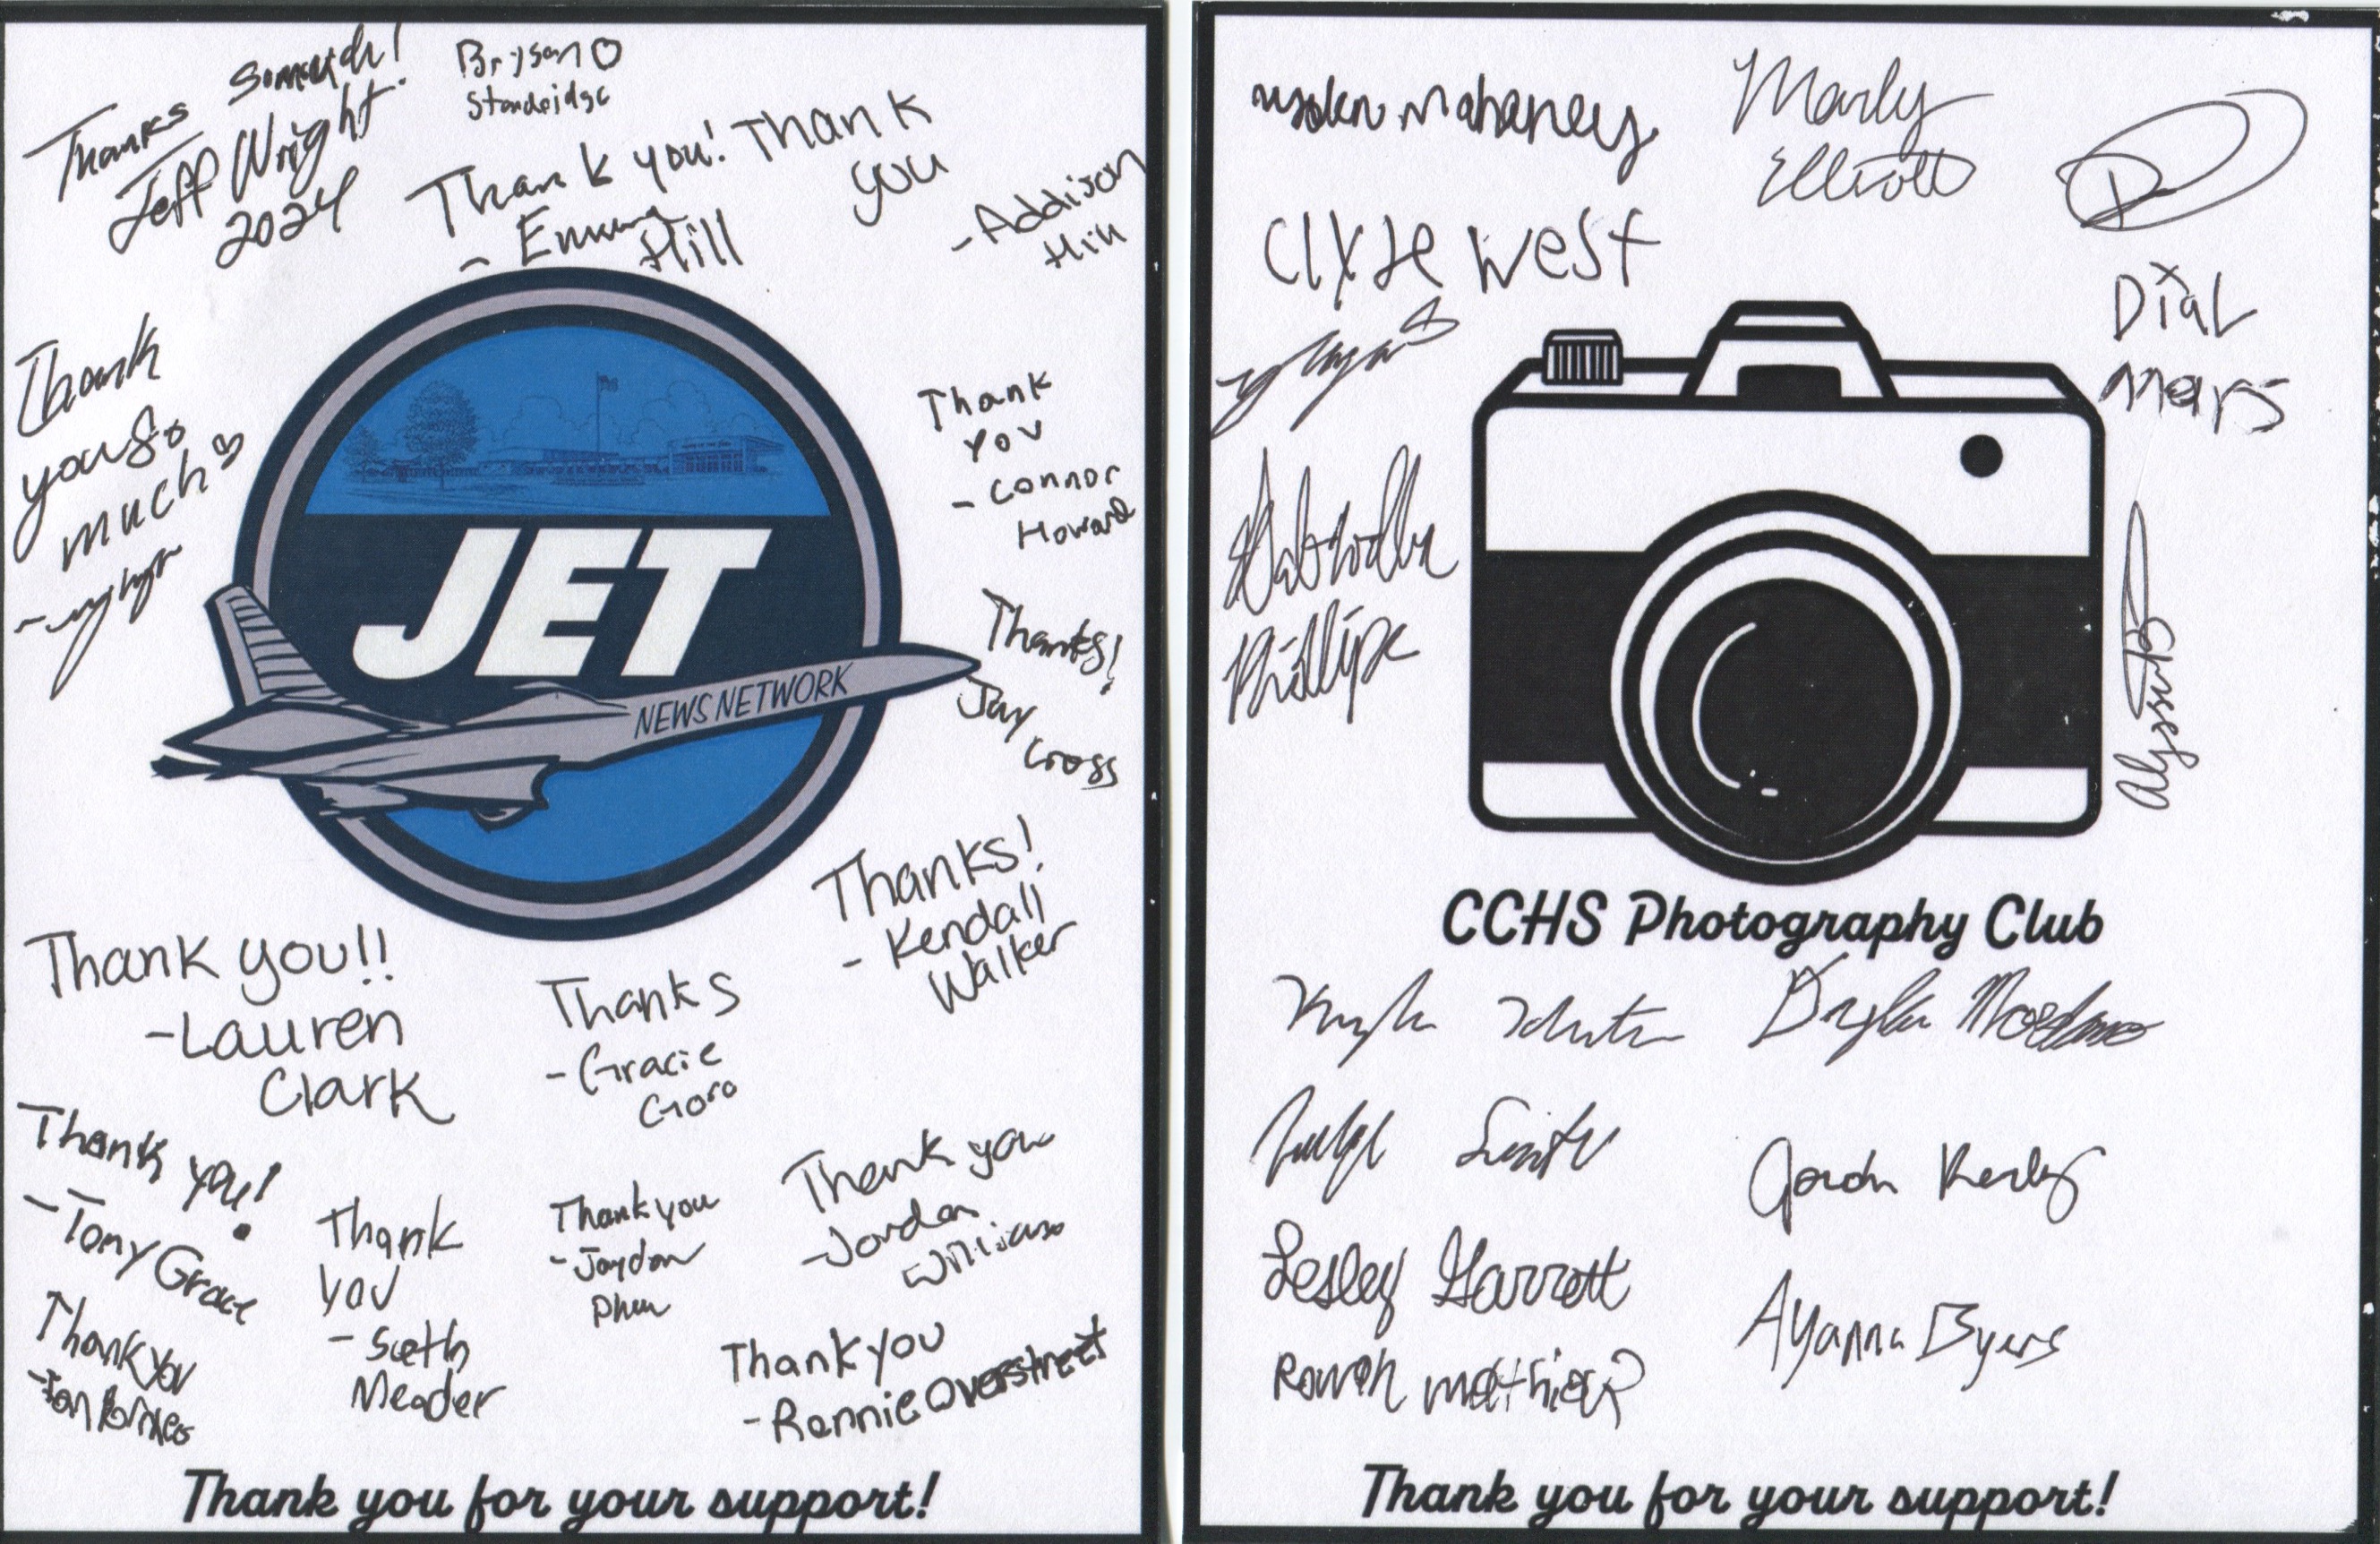 Thanks So much!
Jeff Wright
2024
Bryson
Standridge
Thank you!
- Emma
Hill
Thank
you
- Addison
Hill
Thank
you so
much
Thank
you
- Connor
Howard
JET
NEWS NETWORK
Thanks!
Jay
Cross
Thanks!
- Kendall
Walker
Thank you!!
- Lauren
Clark
Thanks
- Gracie
Goro
Thank you!
- Tony Grace
Thank
you
- Seth
Meador
Thank you
- Jaydon
Thank you
- Jordan
Williams
Thank you
- Ian
Thank you
- Rennie Overstreet
Thank you for your support!
Mahaney
Marly
Elliott
West
Dial
Mars
Gabriella
Phillips
Alyssa B
CCHS Photography Club
Smith
Lesley Garrett
Ayanna Byers
Rowan
Thank you for your support!